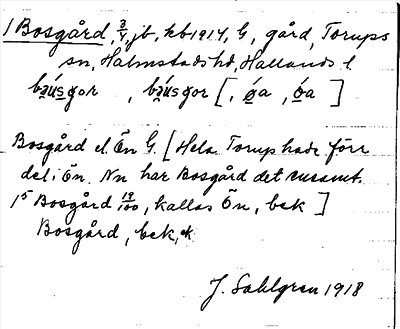 1 Bosgård, 3/4 jb, kb 1917, G, gård, Torups
sn, Halmstads hd, Hallands l
båusgor , båusgor [, öa , öa ]
Bosgård el. Ön G. [ Hela Torup hade förr
del i Ön. Nu har Bosgård det ensamt.
1⁵ Bosgård 19/100, kallas Ön, bek ]
Bosgård, bek,
J. Sahlgren 1918